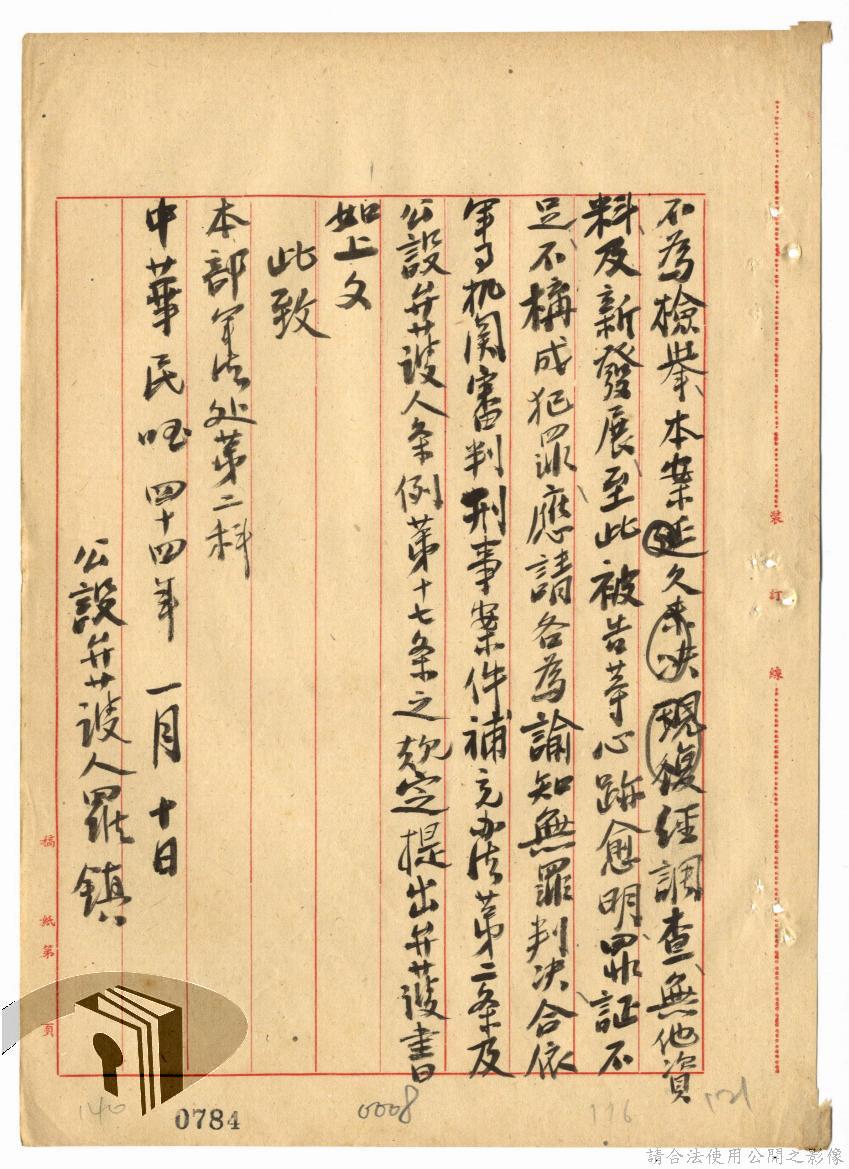 不為檢舉本案延久未决現復經調查無他資
料及新發展至此被告等心跡愈明罪証不
足不構成犯罪應請各為諭知無罪判决合依
軍事机関審判刑事案件補充办法苐二条及
公設弁護人条例苐十七条之規定提出弁護書
如上文
此致
本部軍法处苐二科
中華民国四十四年一月十日
公設弁護人羅鎮
裝訂線
稿紙第頁
140
0784
0008
116
121
請合法使用公開之影像